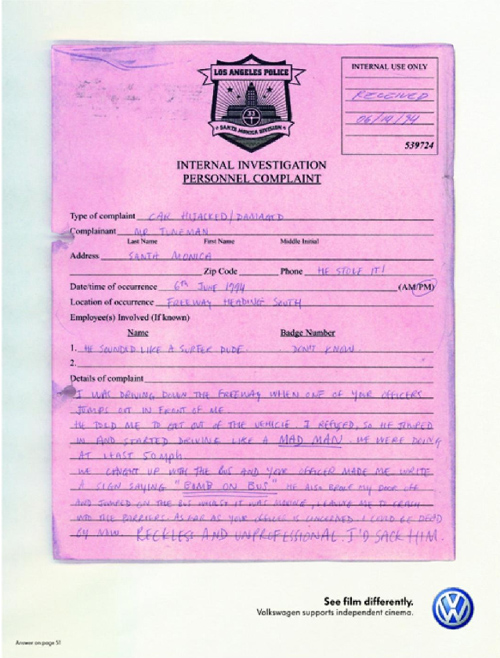 LOS ANGELES POLICE
SANTA MONICA DIVISION
INTERNAL USE ONLY
RECEIVED
06/10/94
539724
INTERNAL INVESTIGATION
PERSONNEL COMPLAINT
Type of complaint CAR HIJACKED/DAMAGED
Complainant MR TUNEMAN
Last Name First Name Middle Initial
Address SANTA MONICA
Zip Code Phone HE STOLE IT!
Date/time of occurrence 6TH JUNE 1994 (AM/PM)
Location of occurrence FREEWAY HEADING SOUTH
Employee(s) Involved (If known)
Name Badge Number
1. HE SOUNDED LIKE A SURFER DUDE. DON'T KNOW
2.
Details of complaint
I WAS DRIVING DOWN THE FREEWAY WHEN ONE OF YOUR OFFICERS
JUMPS OUT IN FRONT OF ME.
HE TOLD ME TO GET OUT OF THE VEHICLE. I REFUSED, SO HE JUMPED
IN AND STARTED DRIVING LIKE A MAD MAN. WE WERE DOING
AT LEAST 50 MPH.
WE CAUGHT UP WITH THE BUS AND YOUR OFFICER MADE ME WRITE
A SIGN SAYING "BOMB ON BUS". HE ALSO BROKE MY DOOR OFF
AND JUMPED ON THE BUS WHILST IT WAS MOVING, LEAVING ME TO CRASH
INTO THE BARRIERS. AS FAR AS YOUR OFFICER IS CONCERNED I COULD BE DEAD
BY NOW. RECKLESS AND UNPROFESSIONAL. I'D SACK HIM.
See film differently.
Volkswagen supports independent cinema.
Answer on page 51